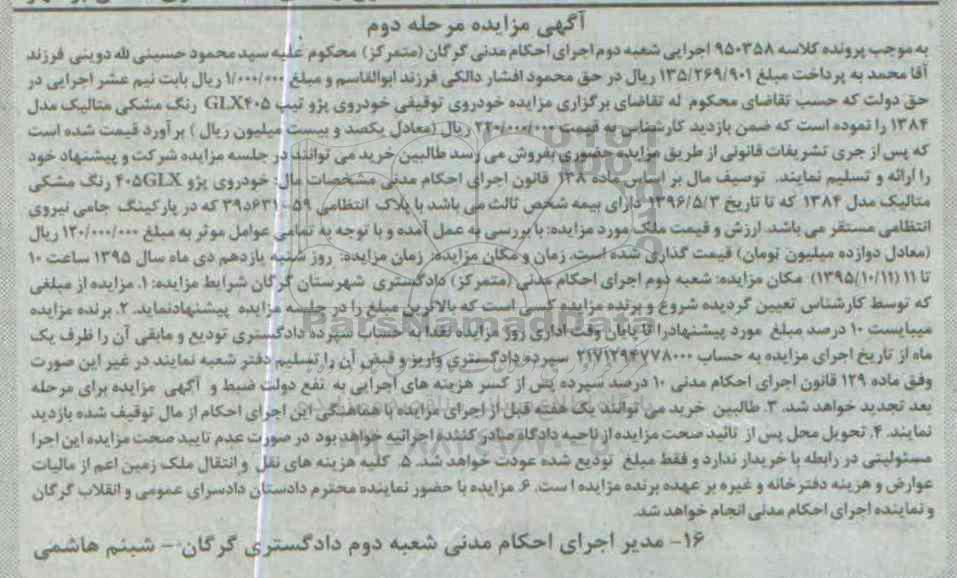 آگهی مزایده مرحله دوم
به موجب پرونده کلاسه ۹۵۰۳۵۸ اجرایی شعبه دوم اجرای احکام مدنی گرگان (متمرکز) محکوم علیه سید محمود حسینی لله دوینی فرزند
آقا محمد به پرداخت مبلغ ۱۳۵/۲۶۹/۹۰۱ ریال در حق محمود افشار دالکی فرزند ابوالقاسم و مبلغ ۱/۰۰۰/۰۰۰ ریال بابت نیم عشر اجرایی در
حق دولت که حسب تقاضای محکوم له تقاضای برگزاری مزایده خودروی توقیفی خودروی پژو تیپ GLX۴۰۵ رنگ مشکی متالیک مدل
۱۳۸۴ را نموده است که ضمن بازدید کارشناس به قیمت ۲۲۰/۰۰۰/۰۰۰ ریال (معادل یکصد و بیست میلیون ریال) برآورد قیمت شده است
که پس از جری تشریفات قانونی از طریق مزایده حضوری بفروش می رسد طالبین خرید می توانند در جلسه مزایده شرکت و پیشنهاد خود
را ارائه و تسلیم نمایند. توصیف مال بر اساس ماده ۱۳۸ قانون اجرای احکام مدنی مشخصات مال: خودروی پژو ۴۰۵GLX رنگ مشکی
متالیک مدل ۱۳۸۴ که تا تاریخ ۱۳۹۶/۵/۳ دارای بیمه شخص ثالث می باشد با پلاک انتظامی ۵۹-۶۳۱د۳۹ که در پارکینگ جامی نیروی
انتظامی مستقر می باشد. ارزش و قیمت ملک مورد مزایده: با بررسی به عمل آمده و با توجه به تمامی عوامل موثر به مبلغ ۱۲۰/۰۰۰/۰۰۰ ریال
(معادل دوازده میلیون تومان) قیمت گذاری شده است. زمان و مکان مزایده: زمان مزایده: روز شنبه یازدهم دی ماه سال ۱۳۹۵ ساعت ۱۰
تا ۱۱ (۱۳۹۵/۱۰/۱۱) مکان مزایده: شعبه دوم اجرای احکام مدنی (متمرکز) دادگستری شهرستان گرگان شرایط مزایده: ۱. مزایده از مبلغی
که توسط کارشناس تعیین گردیده شروع و برنده مزایده کسی است که بالاترین مبلغ را در جلسه مزایده پیشنهادنماید. ۲. برنده مزایده
میبایست ۱۰ درصد مبلغ مورد پیشنهادرا تا پایان وقت اداری روز مزایده نقدا به حساب سپرده دادگستری تودیع و مابقی آن را ظرف یک
ماه از تاریخ اجرای مزایده به حساب ۲۱۷۱۲۹۴۷۷۸۰۰۰ سپرده دادگستری واریز و قبض آن را تسلیم دفتر شعبه نمایند در غیر این صورت
وفق ماده ۱۲۹ قانون اجرای احکام مدنی ۱۰ درصد سپرده پس از کسر هزینه های اجرایی به نفع دولت ضبط و آگهی مزایده برای مرحله
بعد تجدید خواهد شد. ۳. طالبین خرید می توانند یک هفته قبل از اجرای مزایده با هماهنگی این اجرای احکام از مال توقیف شده بازدید
نمایند. ۴. تحویل محل پس از تائید صحت مزایده از ناحیه دادگاه صادر کننده اجرائیه خواهد بود در صورت عدم تایید صحت مزایده این اجرا
مسئولیتی در رابطه با خریدار ندارد و فقط مبلغ تودیع شده عودت خواهد شد. ۵. کلیه هزینه های نقل و انتقال ملک زمین اعم از مالیات
عوارض و هزینه دفترخانه و غیره بر عهده برنده مزایده است. ۶. مزایده با حضور نماینده محترم دادستان دادسرای عمومی و انقلاب گرگان
و نماینده اجرای احکام مدنی انجام خواهد شد.
۱۶- مدیر اجرای احکام مدنی شعبه دوم دادگستری گرگان - شبنم هاشمی